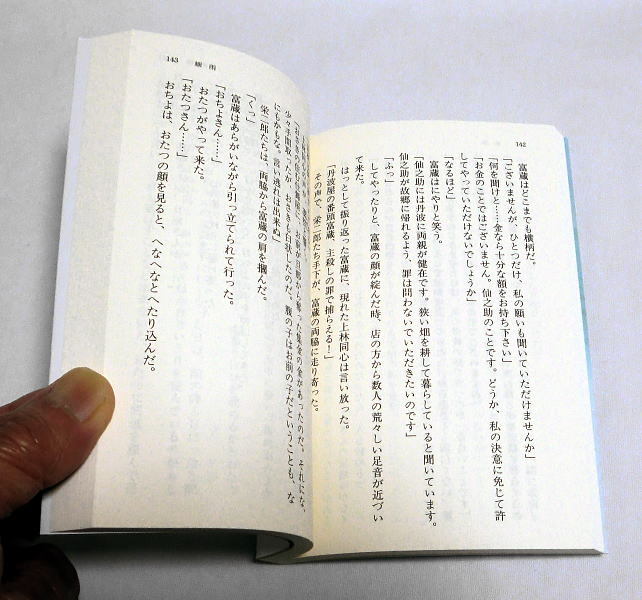 142
富蔵はどこまでも横柄だ。
「ございませんが、ひとつだけ、私の願いも聞いていただけませんか」
「何を聞けと……金なら十分な額をお持ち下さい」
「お金のことではございません。仙之助のことです。どうか、私の決意に免じて許
してやっていただけないでしょうか」
「なるほど」
富蔵はにやりと笑う。
「仙之助には丹波に両親が健在です。狭い畑を耕して暮らしていると聞いています。
仙之助が故郷に帰れるよう、罪は問わないでいただきたいのです」
「ふっ」
してやったりと、富蔵の顔が綻んだ時、店の方から数人の荒々しい足音が近づい
て来た。
はっとして振り返った富蔵に、現れた上林同心は言い放った。
「丹波屋の番頭富蔵、主殺しの罪で捕らえる！」
その声で、栄二郎たち手下が、富蔵の両脇に走り寄った。
143 驟雨
少々手間取ったが、おさきも白状したのだ。腹の子はお前の子だということも、な
にもかもな。言い逃れは出来ぬ」
栄二郎たちは、両脇から富蔵の肩を摑んだ。
「くそ」
富蔵はあらがいながら引っ立てられて行った。
「おちよさん……」
おたつがやって来た。
「おたつさん……」
おちよは、おたつの顔を見ると、へなへなとへたり込んだ。